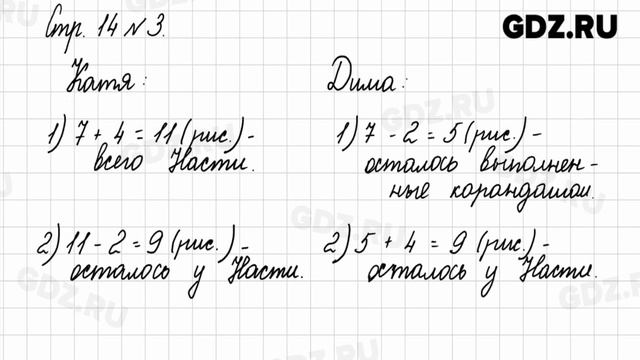 Стр. 14 № 3.
GDZ.RU
Катя:
1) 7 + 4 = 11 (рис.) -
всего Насти.
2) 11 - 2 = 9 (рис.) -
осталось у Насти.
Дима:
1) 7 - 2 = 5 (рис.) -
осталось выполнен-
ные карандашом.
2) 5 + 4 = 9 (рис.) -
осталось у Насти.